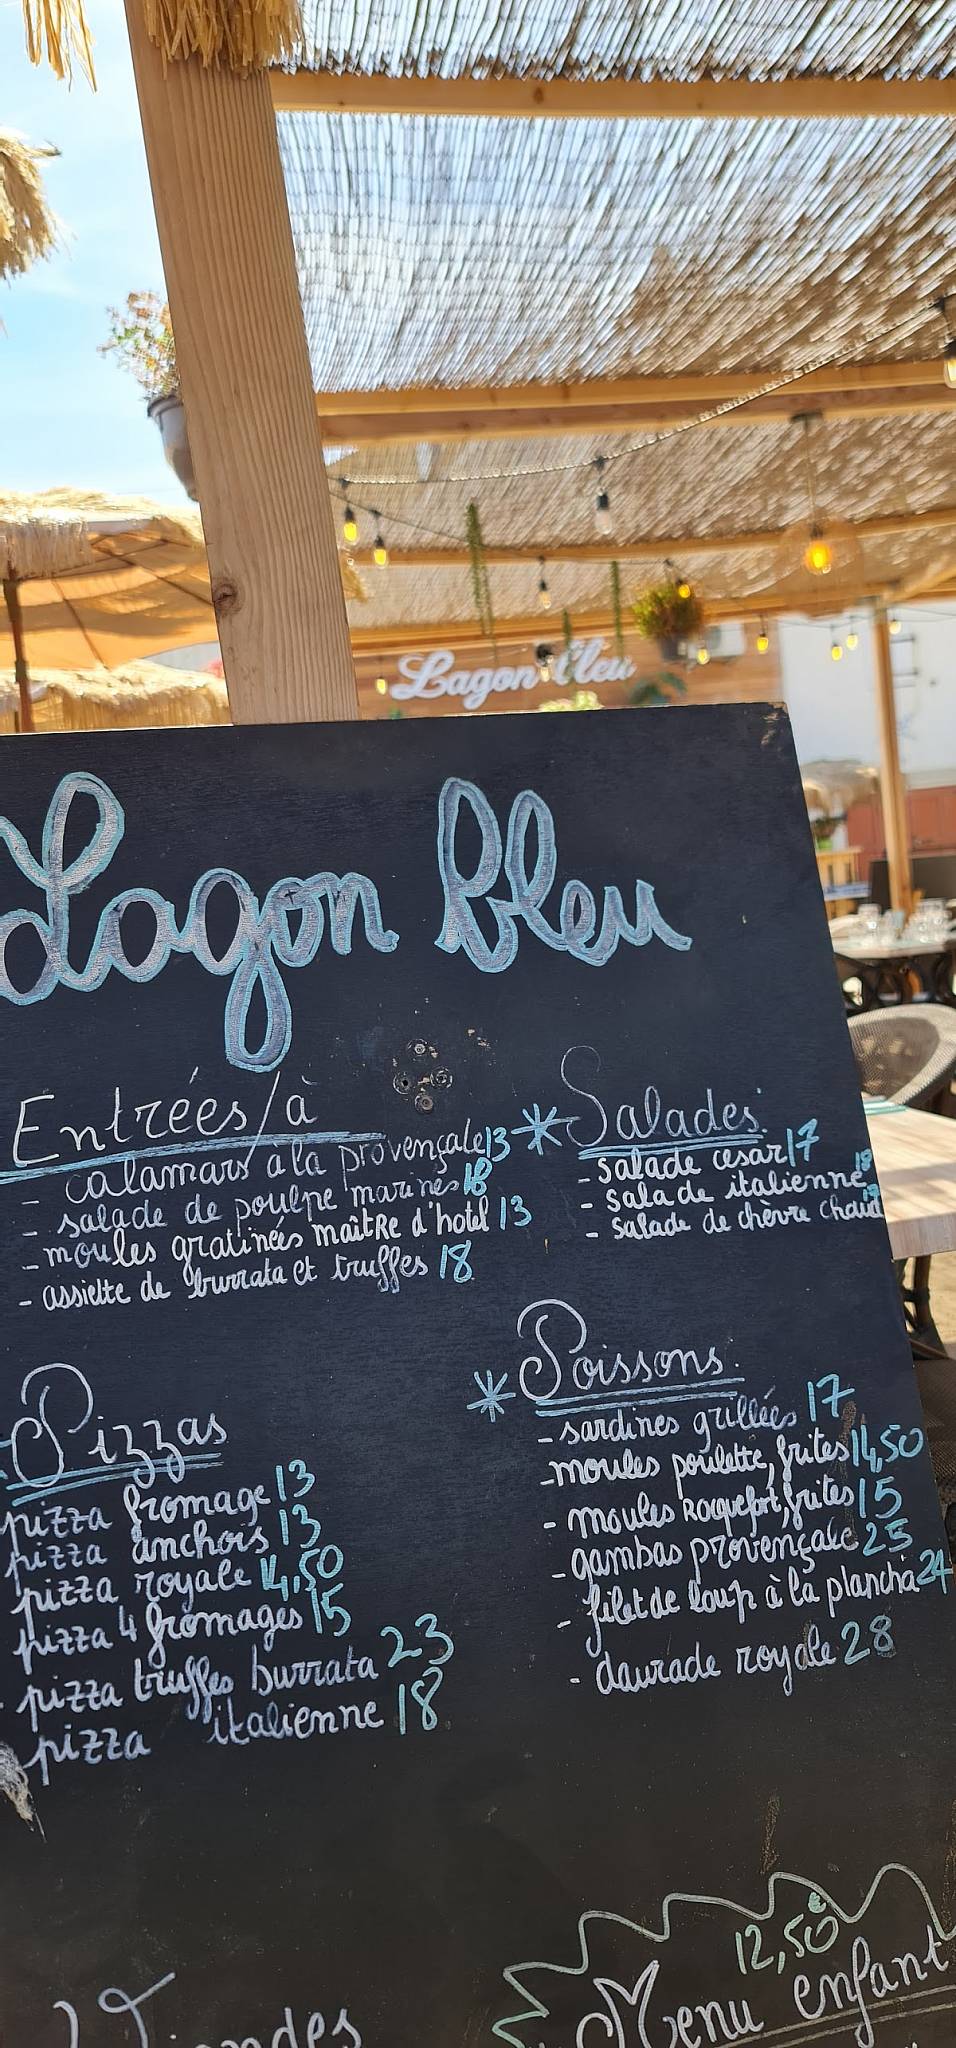 Lagon bleu
Lagon bleu
Entrées/à
- calamars à la provençale 13
- salade de poulpe marinés 18
- moules gratinées maîtRe d'hotel 13
- assiette de burrata et truffes 18
* Salades:
- salade cesar 17
- salade italienne 18
- salade de chèvre chaud
Pizzas
pizza fromage 13
pizza anchois 13
pizza royale 14,50
pizza 4 fromages 15
- pizza truffes burrata 23
pizza italienne 18
* Poissons:
- sardines grillées 17
- moules poulette, frites 14,50
- moules Roquefort, frites 15
- gambas provençale 25
- filet de loup à la plancha 24
- daurade royale 28
12,50€
Menu enfant
Viandes